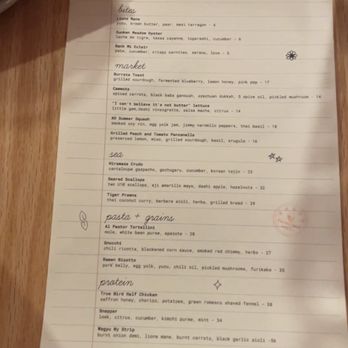 bites
Lions Mane
yuzu, brown butter, pear, basil tarragon - 4
Sunken Meadow Oyster
leche de tigre, texas cayenne, togarashi, cucumber - 6
Banh Mi Eclair
pate, cucumber, crispy carrots, serano, love - 5
market
Burrata Toast
grilled sourdough, fermented blueberry, lemon honey, pink pep - 17
Camemota
spiced carrots, black baba ganoush, szechuan dukkah, 5 spice oil, pickled mushroom - 14
"I can't believe it's not butter" lettuce
little gem, dashi vinaigrette, salsa macha, citrus - 14
XO Summer Squash
smoked soy rin, egg yolk jam, jimmy nardello peppers, thai basil - 18
Grilled Peach and Tomato Panzanella
preserved lemon, miso, grilled sourdough, basil, arugula - 18
sea
Hiramasa Crudo
cantaloupe gazpacho, gochugaru, cucumber, korean tajin - 23
Seared Scallops
two U10 scallops, aji amarillo mayo, dashi apple, hazelnuts - 32
Tiger Prawns
thai coconut curry, berbere aioli, herbs, grilled bread - 29
pasta + grains
Al Pastor Tortellini
mole, white bean puree, epazote - 28
Gnocchi
chili ricotta, blackened corn sauce, smoked red chimmy, herbs - 27
Ramen Risotto
pork belly, egg yolk, yuzu, chili oil, pickled mushrooms, furikake - 30
protein
True Bird Half Chicken
saffron honey, chorizo, potatoes, green romesco shaved fennel - 36
Snapper
leek, citrus, cucumber, kimchi puree, mint - 34
Wagyu Ny Strip
burnt onion demi, lions mane, burnt carrots, black garlic aioli - 56